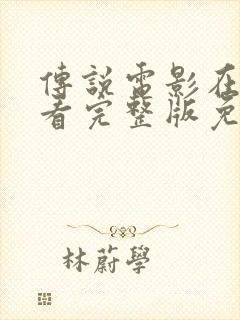 傳說電影在
看完整版免
林蔚學